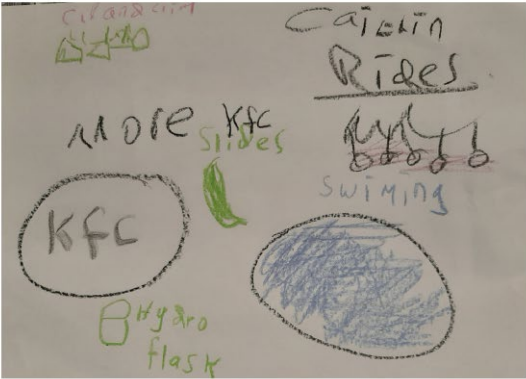 Caitlin
Rides
More Kfc
Slides
swiming
Kfc
Hydro
flask